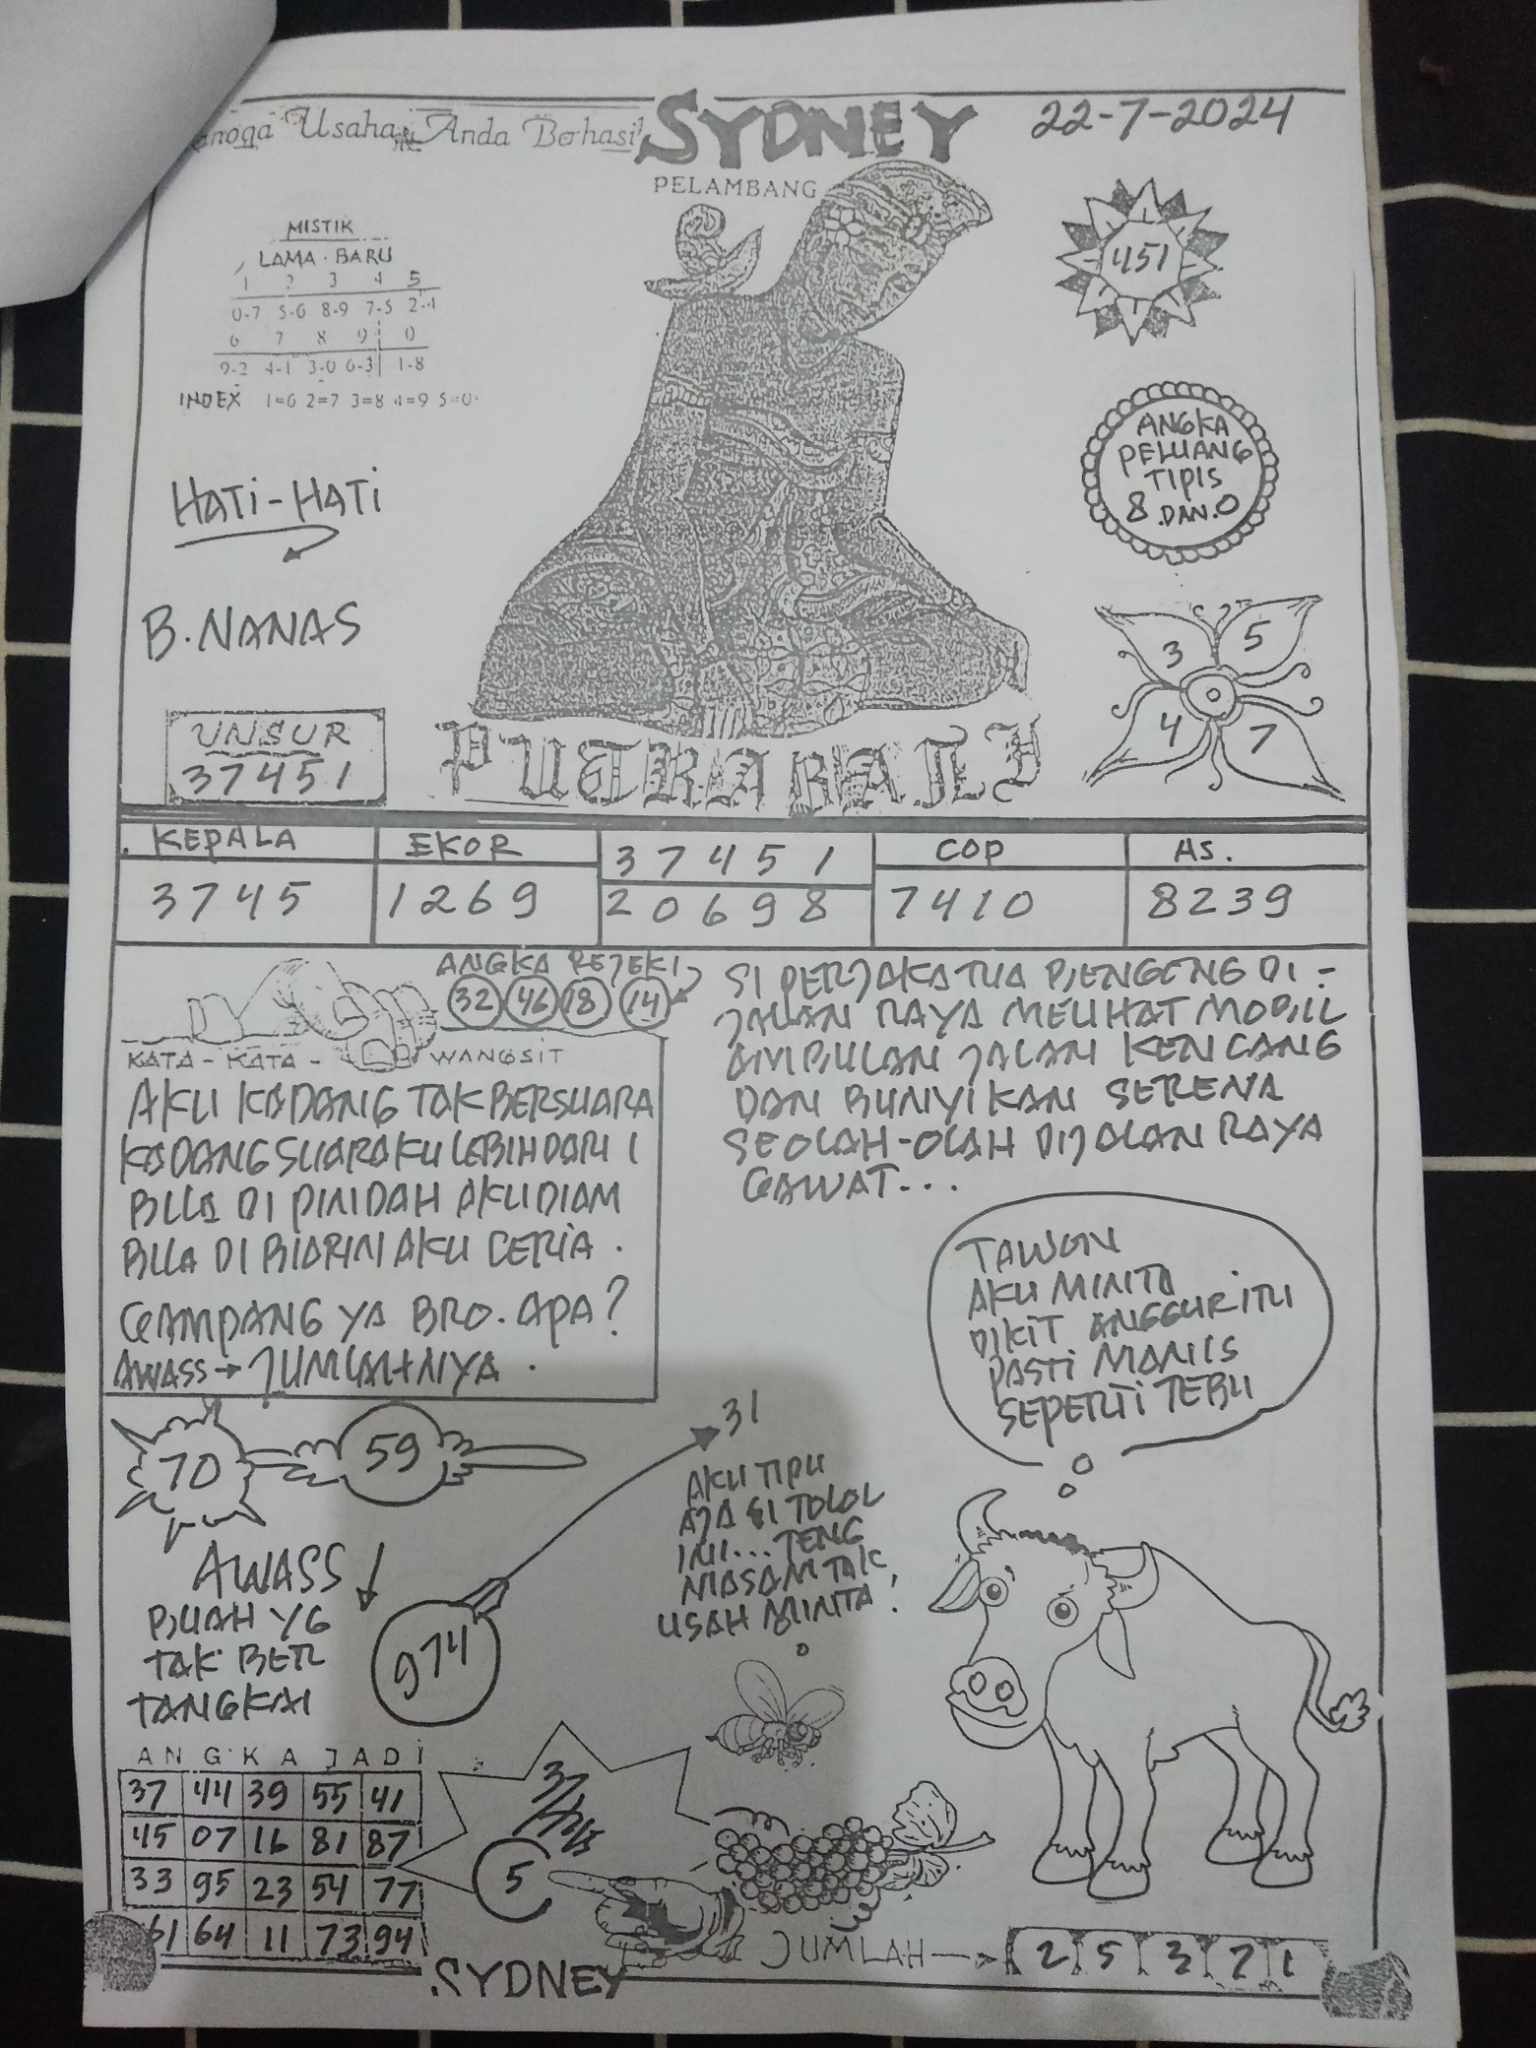 Usaha Anda Berhasil
SYDNEY
22-7-2024
PELAMBANG
MISTIK
LAMA · BARU
1 2 3 4 5
0-7 5-6 8-9 7-5 2-4
6 7 8 9 0
9-2 4-1 3-0 6-3 1-8
INDEX 1=6 2=7 3=8 4=9 5=0
451
ANGKA
PELUANG
TIPIS
8 .DAN. 0
HATI-HATI
B. NANAS
3 5
4 7
UNSUR
37451
PUTRA BALI
KEPALA EKOR 37451 COP AS.
3745 1269 20698 7410 8239
ANGKA REJEKI
32 46 18 14
KATA-KATA- WANGSIT
AKU KADANG TAK BERSUARA
KADANG SUARAKU LEBIH DARI 1
BILA DI PINDAH AKU DIAM
BILA DI BIARIN AKU CERIA.
GAMPANG YA BRO. APA?
AWASS → JUMLAHNYA.
SI PERJAKA TUA BJENGENG DI-
JALAN RAYA MELIHAT MOBIL
AMBULAN JALAN KENCANG
DAN BUNYIKAN SERENA
SEOLAH-OLAH DIJALAN RAYA
GAWAT...
TAWON
AKU MINTA
DIKIT ANGGUR ITU
PASTI MANIS
SEPERTI TEBU
70 59
31
AKU TIPU
AJA SI TOLOL
INI... JENG
MASAM TAK
USAH MINTA!
AWASS
BUAH YG
TAK BER
TANGKAI
974
ANGKA JADI
37 44 39 55 41
45 07 16 81 87
33 95 23 54 77
61 64 11 73 94
37
5
SYDNEY
JUMLAH → 2 5 3 7 1